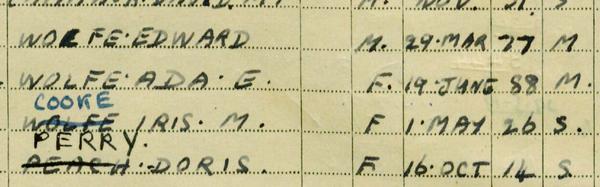 WOLFE·EDWARD M. 29·MAR 77 M
WOLFE·ADA·E. F. 19·JUNE 88 M.
COOKE
WOLFE IRIS. M. F 1·MAY 26 S.
PERRY.
PEACH·DORIS. F 16·OCT 14 S